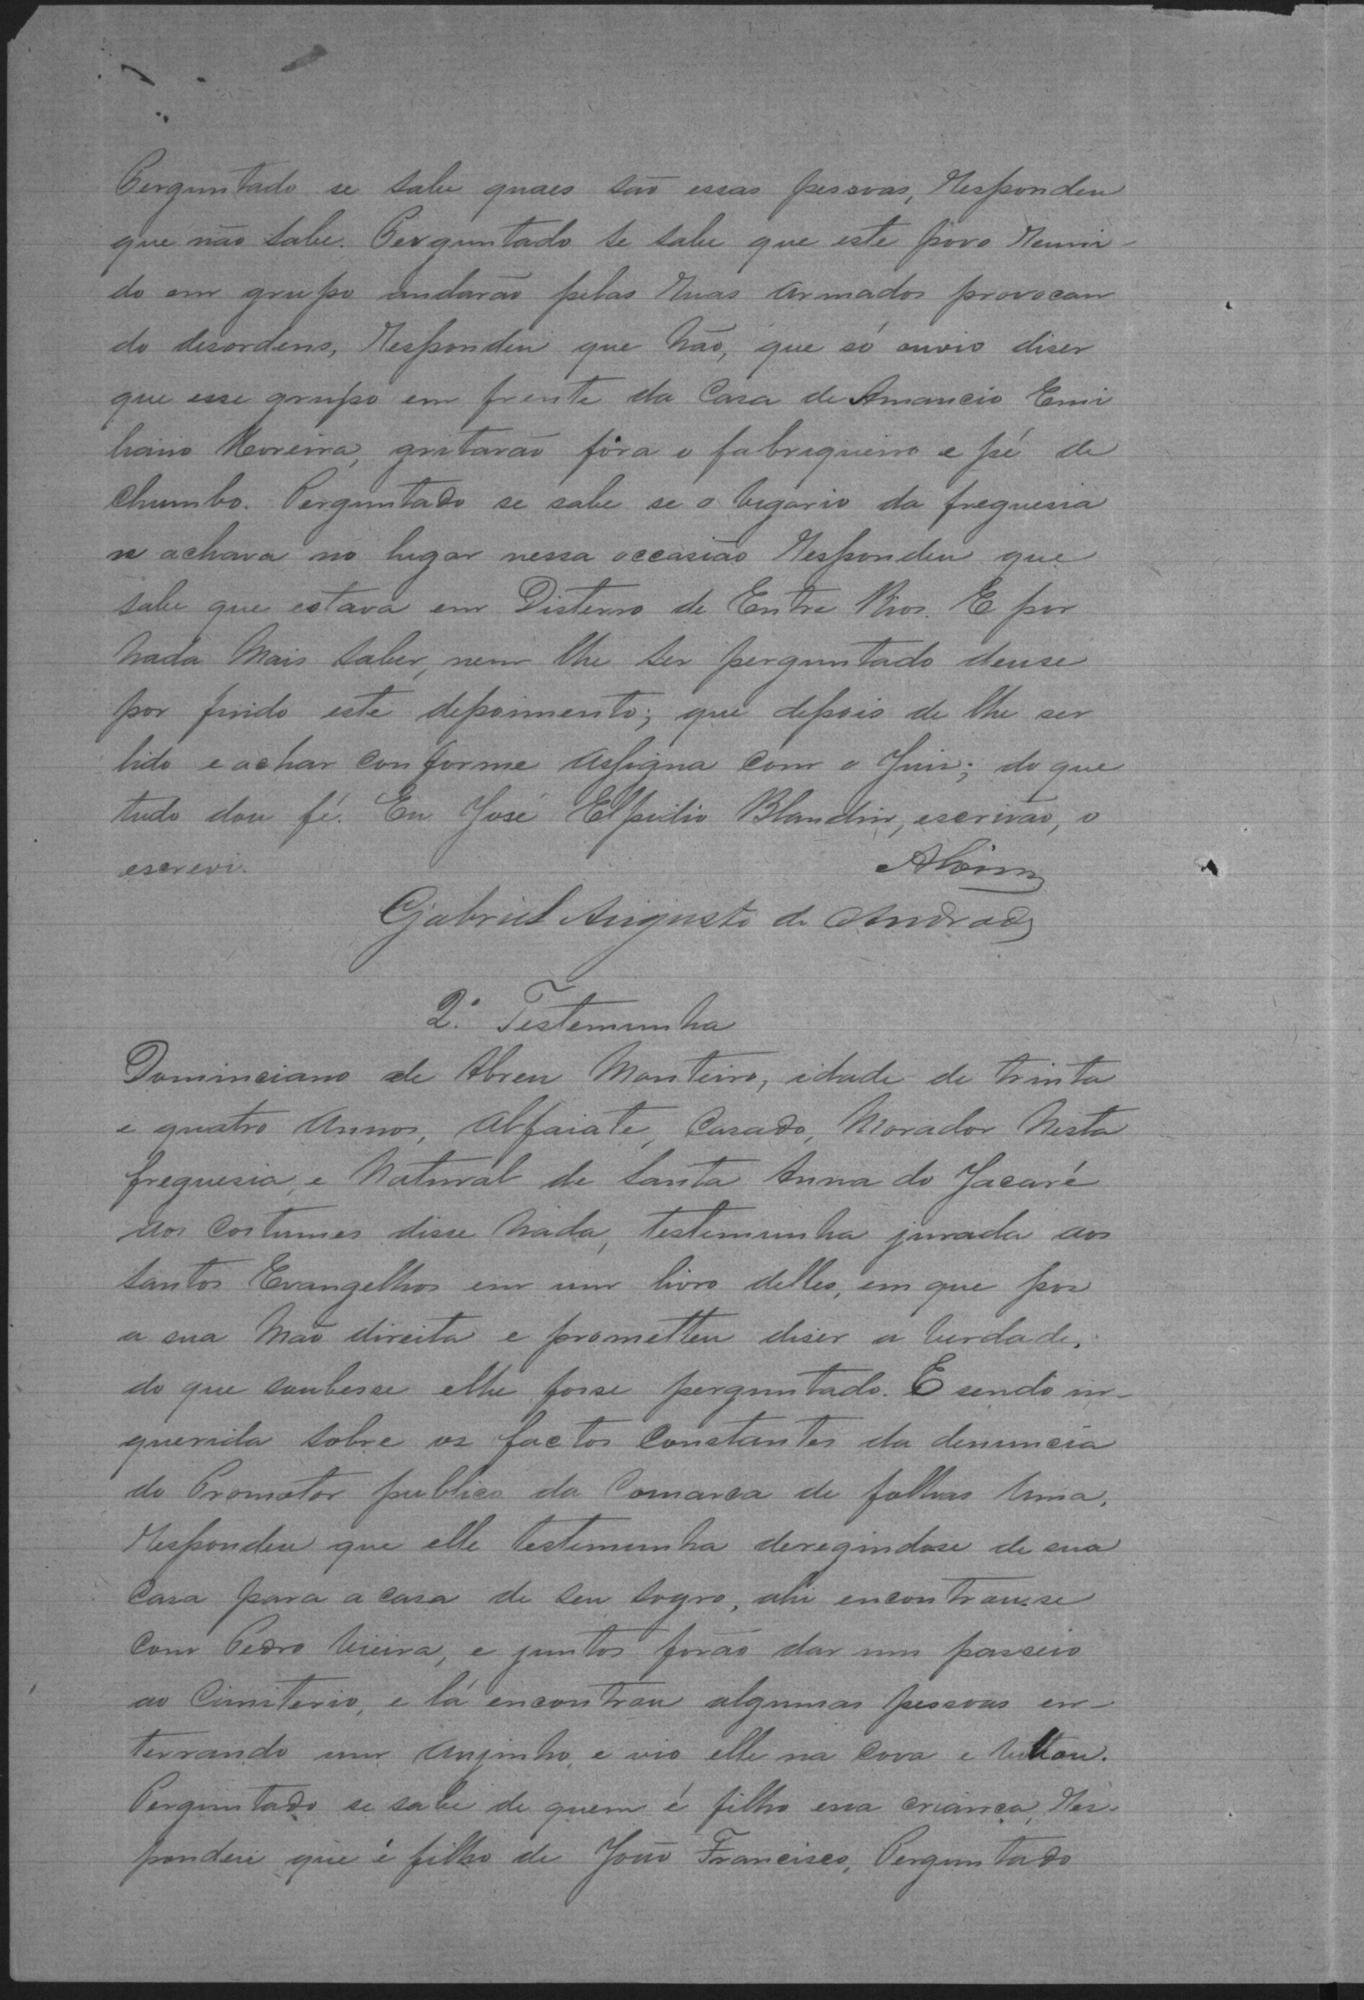 Perguntado se sabe quaes são essas pessoas, Respondeu
que não sabe. Perguntado se sabe que este povo Reuni-
do em grupo andarão pelas Ruas armados provocan
do desordens, Respondeu que não, que só ouvio diser
que esse grupo em frente da Casa de Amancio Emi
liano Moreira, gritarão fóra o fabriqueiro e pé de
chumbo. Perguntado se sabe se o Vigario da freguesia
se achava no lugar nessa occasião Respondeu que
sabe que estava em Disterro de Entre Rios. E por
nada mais saber, nem lhe ser perguntado deuse
por findo este depoimento; que depois de lhe ser
lido e achar conforme assigna com o Juis; do que
tudo dou fé. Eu José Elpidio Blandin, escrivão, o
escrevi.
Gabriel Augusto de Andrade
2ª Testemunha
Dominciano de Abreu Monteiro, idade de trinta
e quatro annos, Alfaiate, Casado, Morador nesta
freguesia, e Natural de Santa Anna do Jacaré
aos costumes disse nada, testemunha jurada aos
Santos Evangelhos em um livro delles, em que pos
a sua mão direita e prometteu diser a verdade,
do que soubesse elhe fosse perguntado. E sendo in-
querida sobre os factos constantes da denuncia
do Promotor publico da Comarca de folhas uma,
Respondeu que elle testemunha deregindose de sua
casa para a casa de seu sogro, ahi encontrouse
com Pedro Vieira, e juntos forão dar um passeio
ao Cimiterio, e lá encontrou algumas pessoas en-
terrando um anjinho, e vio elle na cova e voltou.
Perguntado se sabe de quem é filho essa criança, Res-
pondeu que é filho de João Francisco, Perguntado